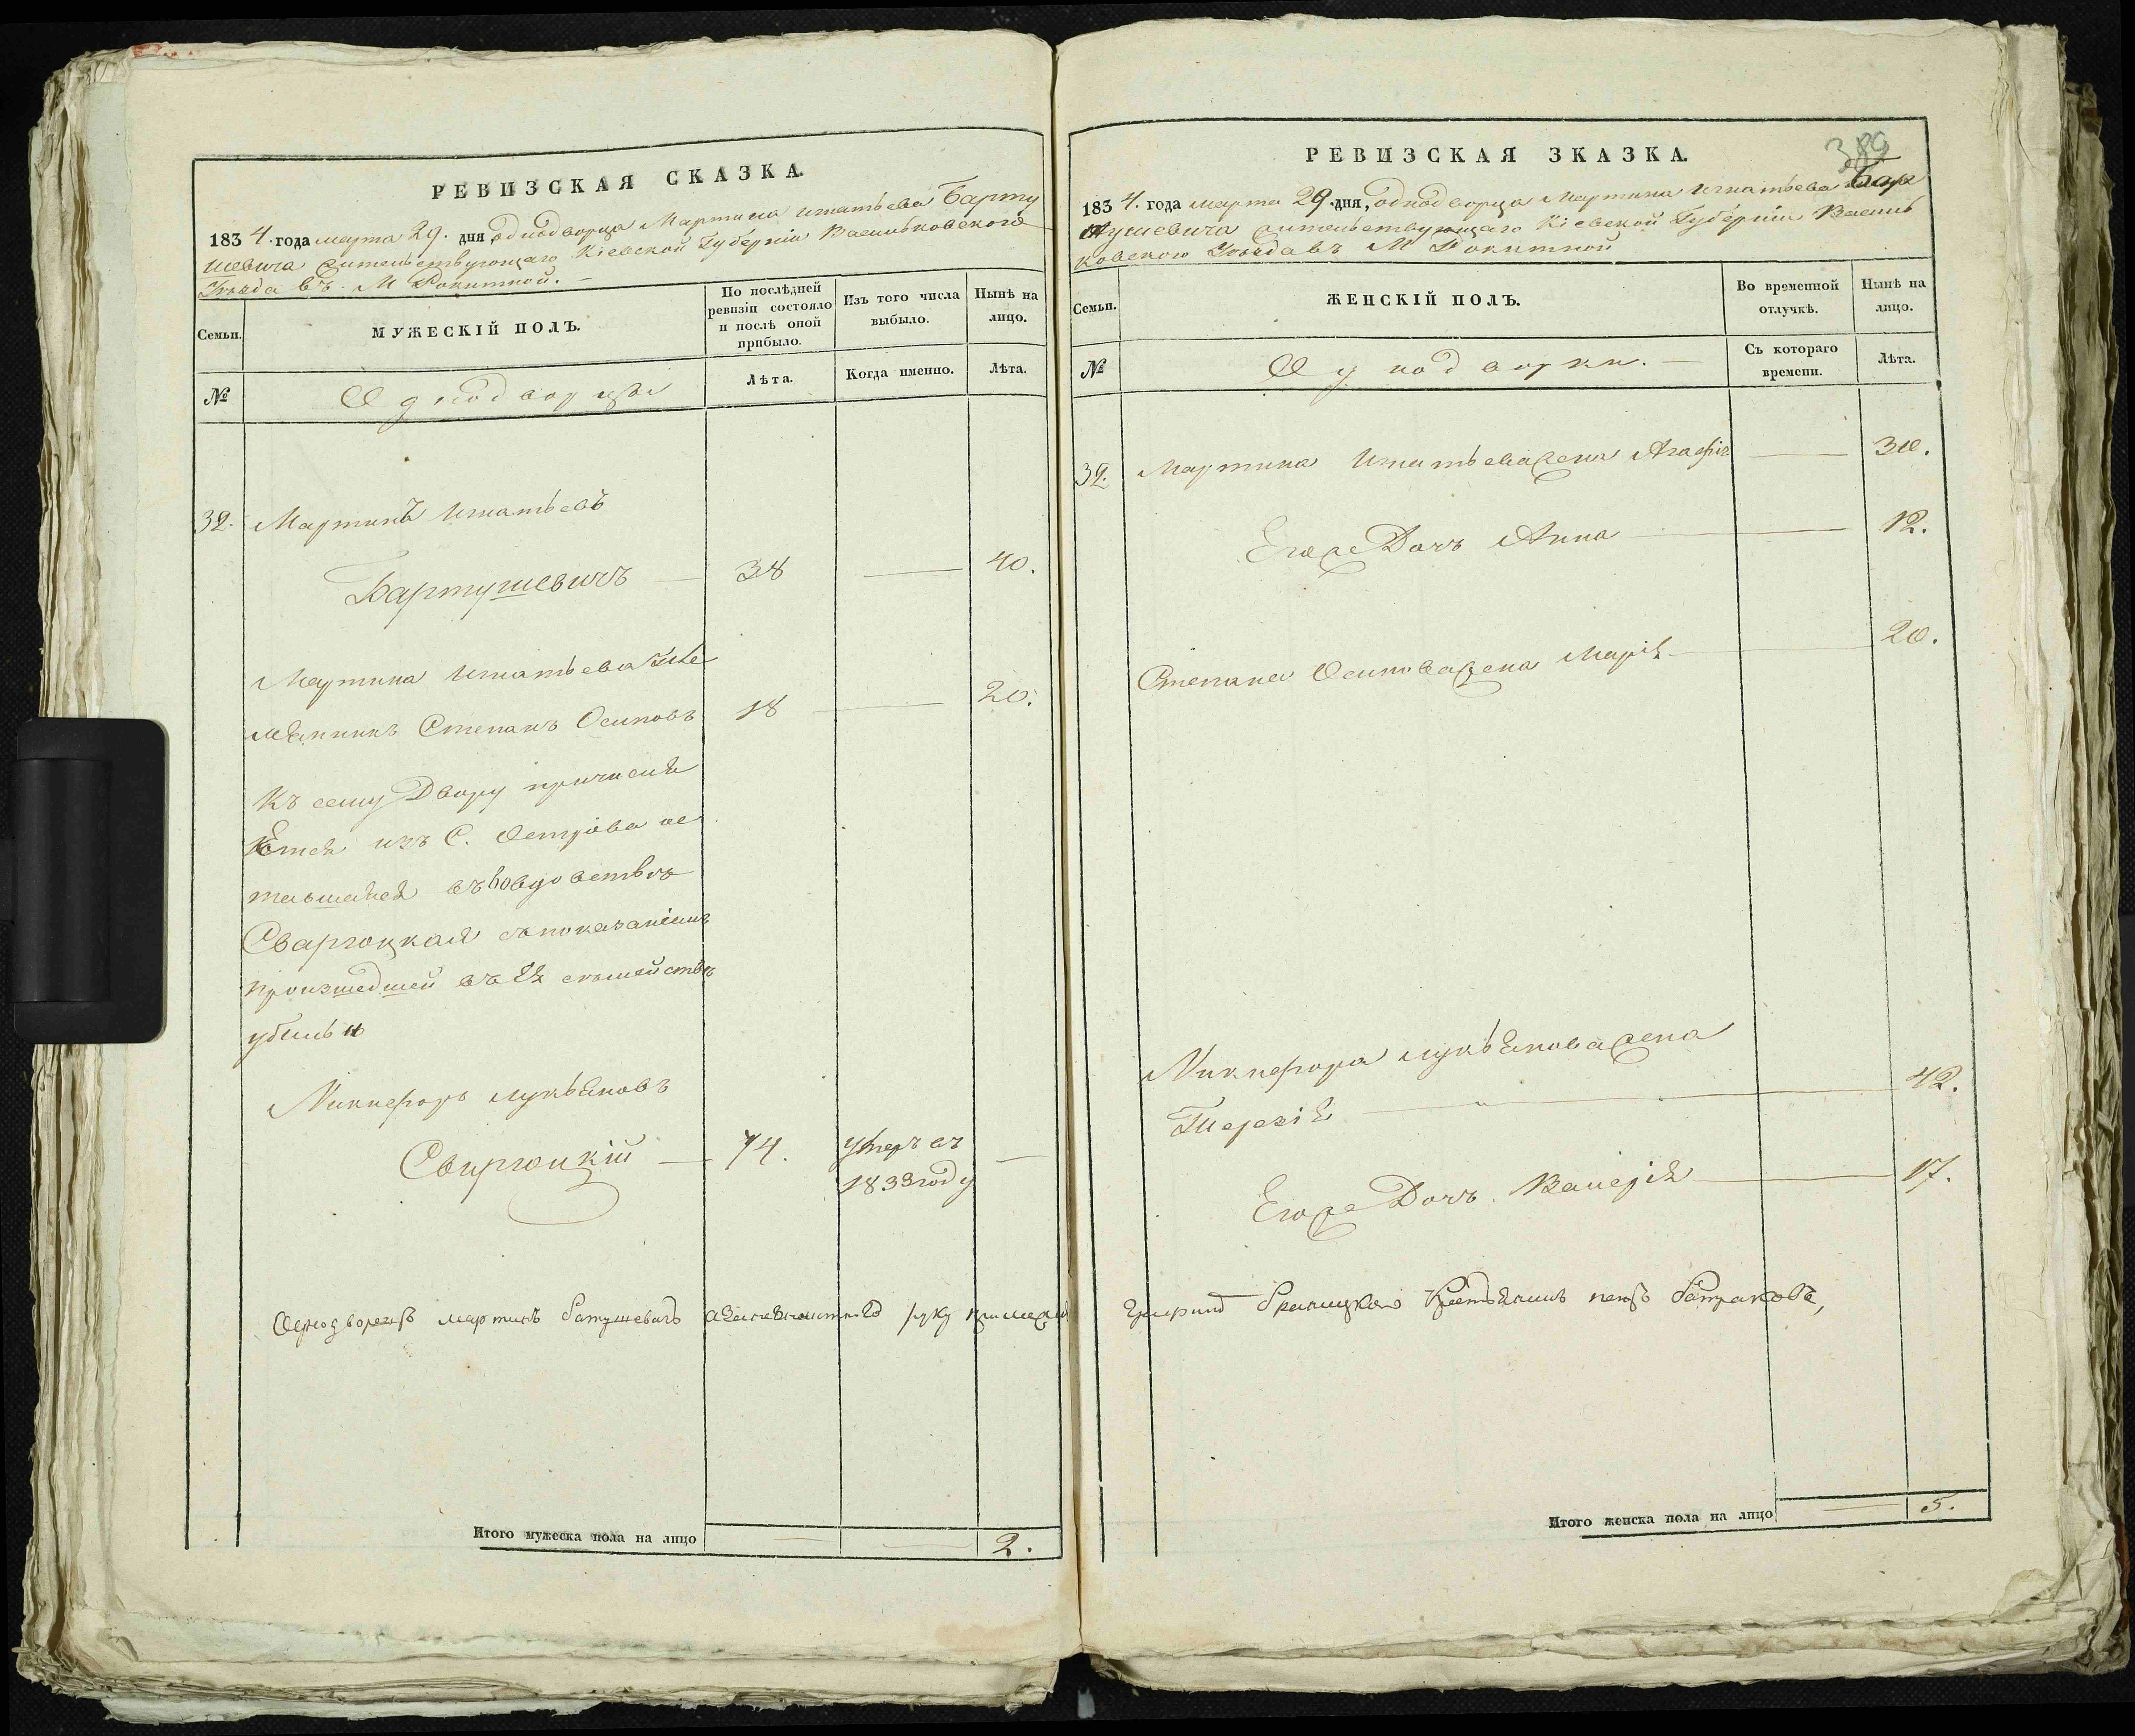 РЕВИЗСКАЯ СКАЗКА.
1834. года марта 29. дня, однодворца Мартина Игнатьева Барту
шевича жительствующаго Кіевской Губерніи Васильковскаго
Уѣзда въ М Рокитной.
Семьи.
МУЖЕСКІЙ ПОЛЪ.
По послѣдней ревизіи состояло и послѣ оной прибыло.
Изъ того числа выбыло.
Нынѣ на лицо.
№
Однодворцы
Лѣта.
Когда именно.
Лѣта.
32. Мартинъ Игнатьевъ
Бартушевичъ — 38 — 40.
Мартина Игнатьева пле
мянникъ Степанъ Осиповъ 18 — 20.
Къ сему Двору причисля
ется изъ С. Острова ос
тавшаяся въ вдовствѣ
Свиргоцкая съ показаніемъ
произшедшей въ ея семействѣ
убыли
Никифоръ Лукьяновъ
Свиргоцкій — 74. умеръ въ —
1833 году
Однодворецъ мартинъ батушевичъ руку
Итого мужеска пола на лицо — — 2.
389
РЕВИЗСКАЯ ЗКАЗКА.
1834. года марта 29. дня, однодворца Мартина Игнатьева Бар
тушевича жительствующаго Кіевской Губерніи Василь
ковского Уѣзда въ М Рокитной
Семьи.
ЖЕНСКІЙ ПОЛЪ.
Во временной отлучкѣ.
Нынѣ на лицо.
№
Однодворки. —
Съ котораго времени.
Лѣта.
32. Мартина Игнатьева жена Агафія — 30.
Его же Дочь Анна — 12.
Степана Осипова жена Марія — 20.
Никифора Лукьянова жена
Терезія — 42.
Его же Дочь Валерія — 17.
браницкого
Итого женска пола на лицо — 5.